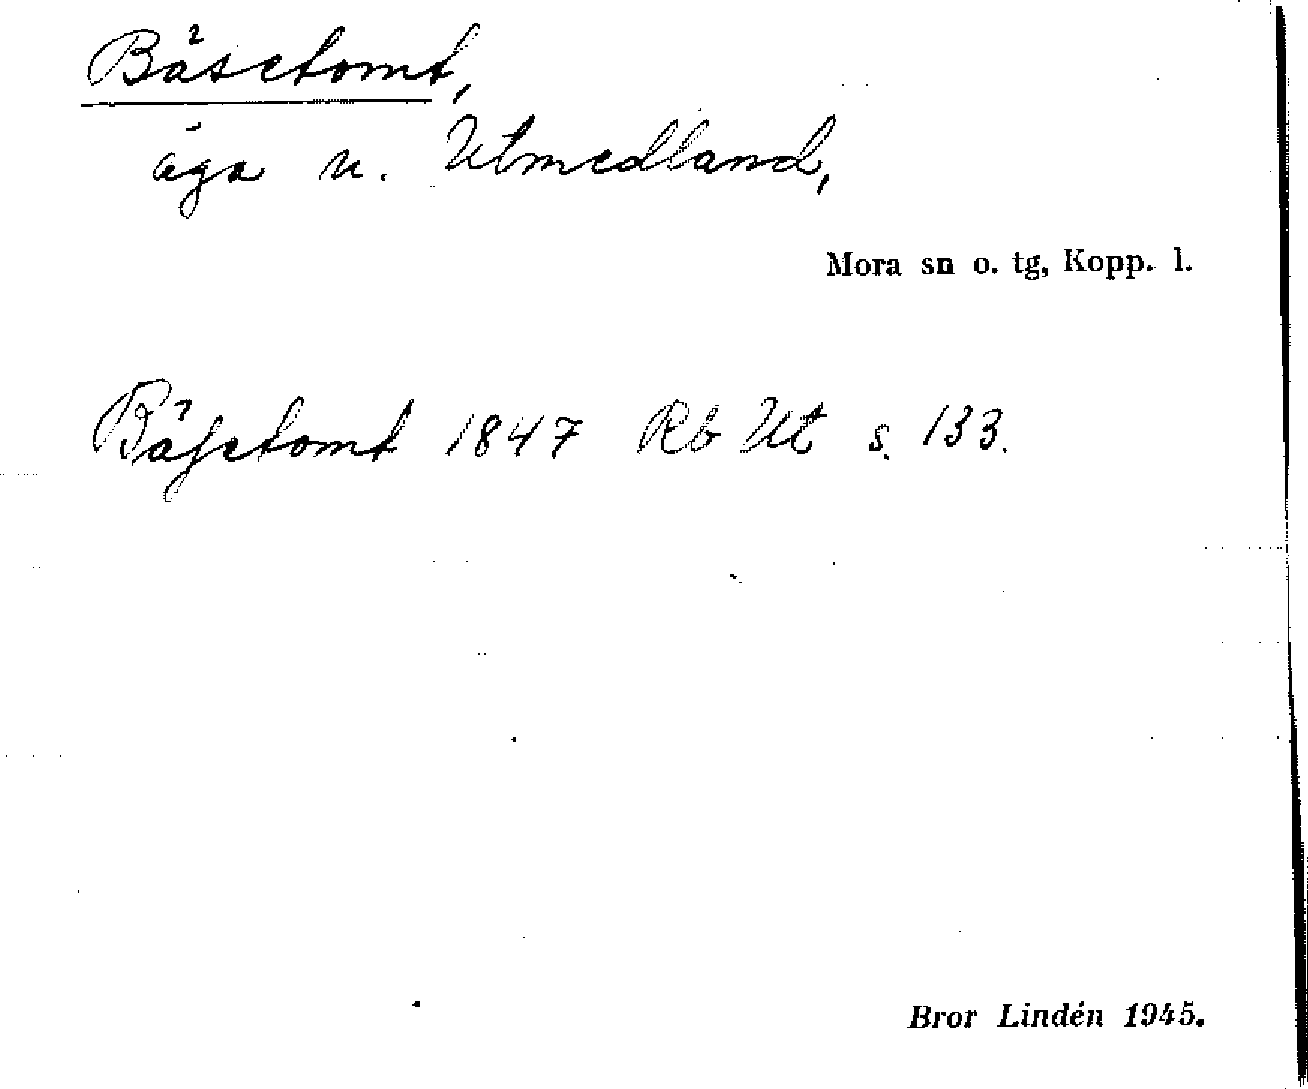 Båsetomt,
äga u. Utmedland,
Mora sn o. tg, Kopp. l.
Båsetomt 1847 Rb Ut s. 133.
Bror Lindén 1945.